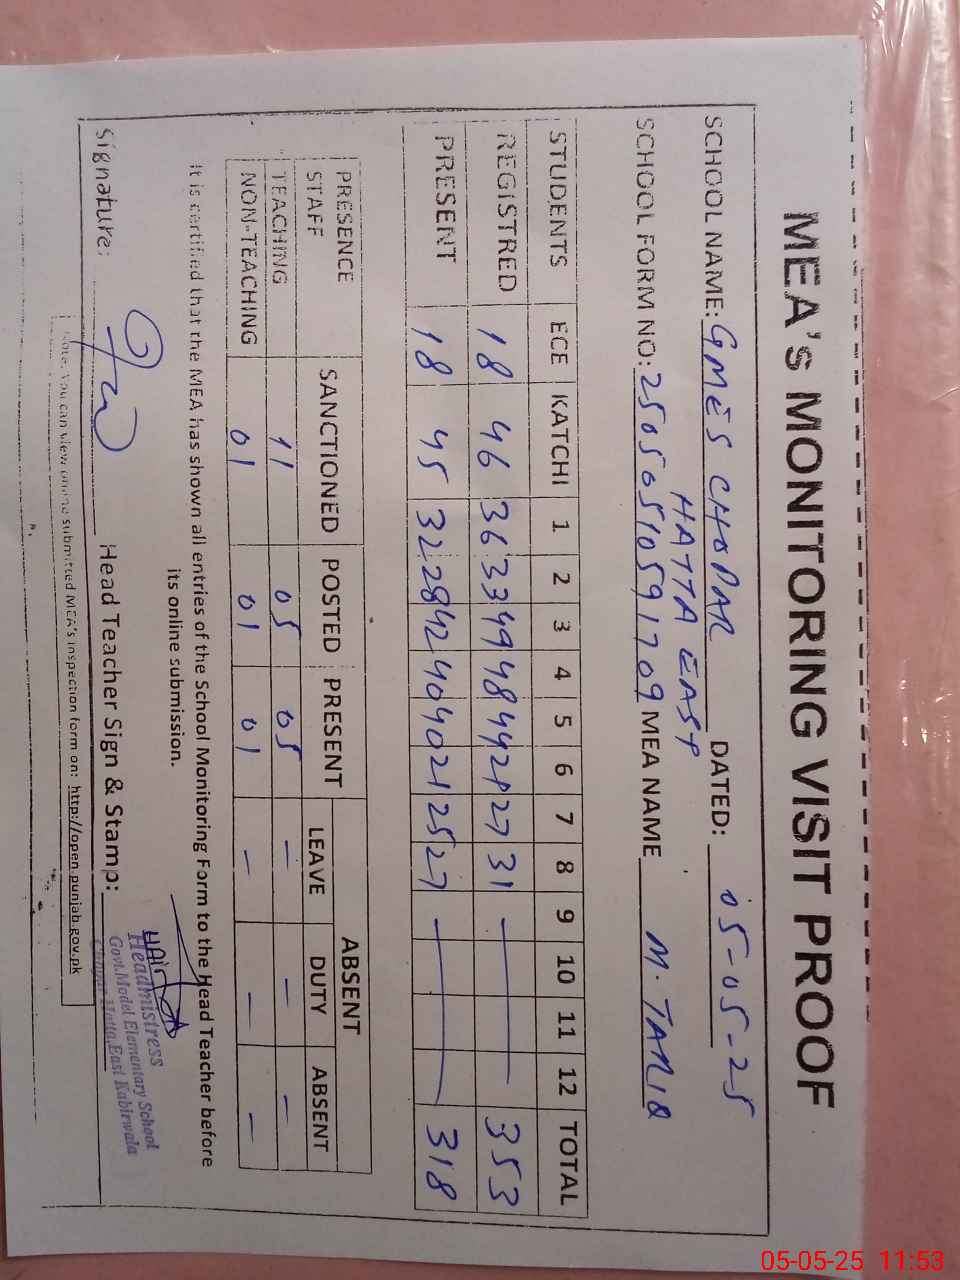 MEA's MONITORING VISIT PROOF
SCHOOL NAME: GMES CHOPAR DATED: 05-05-25
HATTA EAST
SCHOOL FORM NO: 25050510591709 MEA NAME M. TARIQ
STUDENTS ECE KATCHI 1 2 3 4 5 6 7 8 9 10 11 12 TOTAL
REGISTRED 18 46 36 33 49 48 44 21 27 31 — 353
PRESENT 18 45 32 28 42 40 40 21 25 27 — 318
PRESENCE STAFF SANCTIONED POSTED PRESENT ABSENT
LEAVE DUTY ABSENT
TEACHING 11 05 05 – – –
NON-TEACHING 01 01 01 – – –
It is certified that the MEA has shown all entries of the School Monitoring Form to the Head Teacher before
its online submission.
Signature: Head Teacher Sign & Stamp:
Headmistress
Govt.Model Elementary School
Chopar Hatta East Kabirwala
Note: You can view online submitted MEA's inspection form on: http://open.punjab.gov.pk
05-05-25 11:53